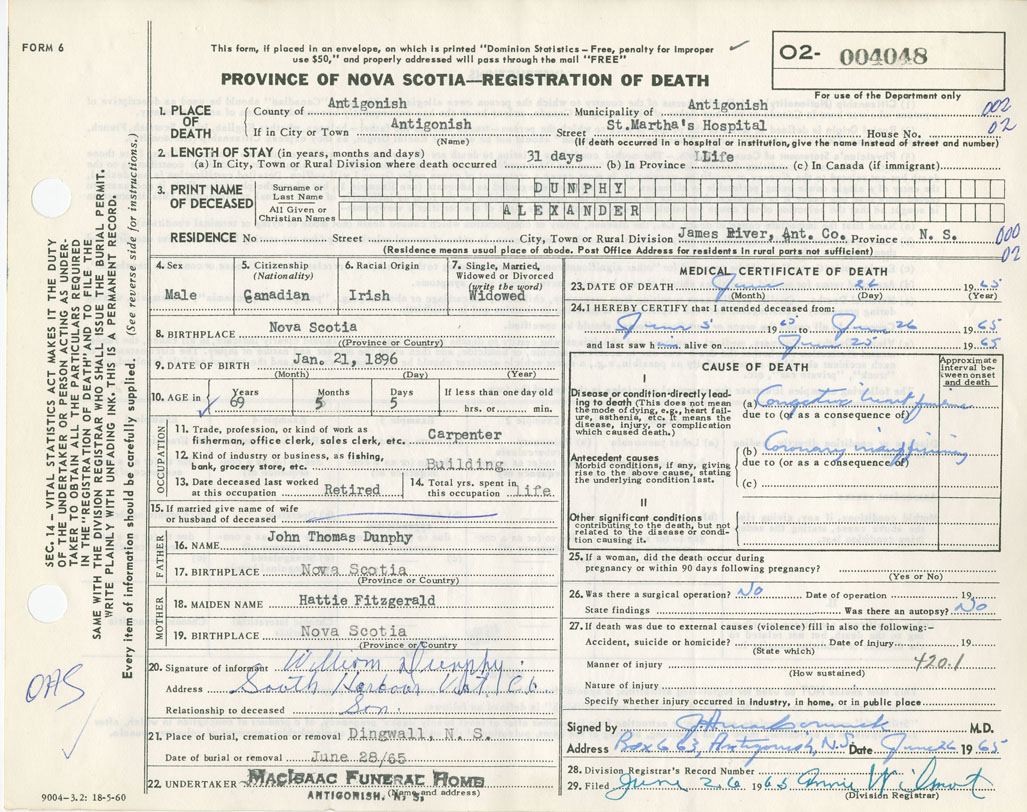 FORM 6
This form, if placed in an envelope, on which is printed "Dominion Statistics – Free, penalty for improper
use $50," and properly addressed will pass through the mail "FREE"
PROVINCE OF NOVA SCOTIA—REGISTRATION OF DEATH
O2- 004048
For use of the Department only
1. PLACE OF DEATH County of Antigonish Municipality of Antigonish 002
If in City or Town Antigonish Street St.Martha's Hospital House No. 02
(Name) (If death occurred in a hospital or institution, give the name instead of street and number)
2. LENGTH OF STAY (in years, months and days)
(a) In City, Town or Rural Division where death occurred 31 days (b) In Province Life (c) In Canada (if immigrant)
3. PRINT NAME OF DECEASED Surname or Last Name DUNPHY
All Given or Christian Names ALEXANDER
RESIDENCE No Street City, Town or Rural Division James River, Ant. Co. Province N. S. 000
(Residence means usual place of abode. Post Office Address for residents in rural parts not sufficient) 02
4. Sex Male
5. Citizenship (Nationality) Canadian
6. Racial Origin Irish
7. Single, Married, Widowed or Divorced (write the word) Widowed
8. BIRTHPLACE Nova Scotia
((Province or Country)
9. DATE OF BIRTH Jan. 21, 1896
(Month) (Day) (Year)
10. AGE in Years 69 Months 5 Days 5 If less than one day old hrs. or min.
OCCUPATION
11. Trade, profession, or kind of work as fisherman, office clerk, sales clerk, etc. Carpenter
12. Kind of industry or business, as fishing, bank, grocery store, etc. Building
13. Date deceased last worked at this occupation Retired
14. Total yrs. spent in this occupation life
15. If married give name of wife or husband of deceased
FATHER
16. NAME John Thomas Dunphy
17. BIRTHPLACE Nova Scotia
(Province or Country)
MOTHER
18. MAIDEN NAME Hattie Fitzgerald
19. BIRTHPLACE Nova Scotia
(Province or Country)
20. Signature of informant William Dunphy
Address South Harbour Vict Co
Relationship to deceased Son
21. Place of burial, cremation or removal Dingwall, N. S.
Date of burial or removal June 28/65
22. UNDERTAKER MacIsaac Funeral Home
(Name and address)
ANTIGONISH, N. S.
MEDICAL CERTIFICATE OF DEATH
23. DATE OF DEATH June 26 1965
(Month) (Day) (Year)
24. I HEREBY CERTIFY that I attended deceased from:
June 5 1965 to June 26 1965
and last saw him alive on June 25 1965
CAUSE OF DEATH
Approximate interval between onset and death
I
Disease or condition directly leading to death (This does not mean the mode of dying, e.g., heart failure, asthenia, etc. It means the disease, injury, or complication which caused death.)
(a) Congestive heart failure
due to (or as a consequence of)
Antecedent causes
Morbid conditions, if any, giving rise to the above cause, stating the underlying condition last.
(b) Coronary insufficiency
due to (or as a consequence of)
(c)
II
Other significant conditions
contributing to the death, but not related to the disease or condition causing it.
25. If a woman, did the death occur during
pregnancy or within 90 days following pregnancy?
(Yes or No)
26. Was there a surgical operation? No Date of operation 19
State findings Was there an autopsy? No
27. If death was due to external causes (violence) fill in also the following:–
Accident, suicide or homicide? Date of injury 19
(State which)
Manner of injury 420.1
(How sustained)
Nature of injury
Specify whether injury occurred in industry, in home, or in public place
Signed by M.D.
Address Box 663, Antigonish, N.S. Date June 26 1965
28. Division Registrar's Record Number
29. Filed June 26 1965 Annie Wilmot
(Division Registrar)
SEC. 14 – VITAL STATISTICS ACT MAKES IT THE DUTY
OF THE UNDERTAKER OR PERSON ACTING AS UNDER-
TAKER TO OBTAIN ALL THE PARTICULARS REQUIRED
IN THE "REGISTRATION OF DEATH" AND TO FILE THE
SAME WITH THE DIVISION REGISTRAR WHO SHALL ISSUE THE BURIAL PERMIT.
WRITE PLAINLY WITH UNFADING INK. THIS IS A PERMANENT RECORD.
Every item of information should be carefully supplied. (See reverse side for instructions.)
OAS
9004-3.2: 18-5-60